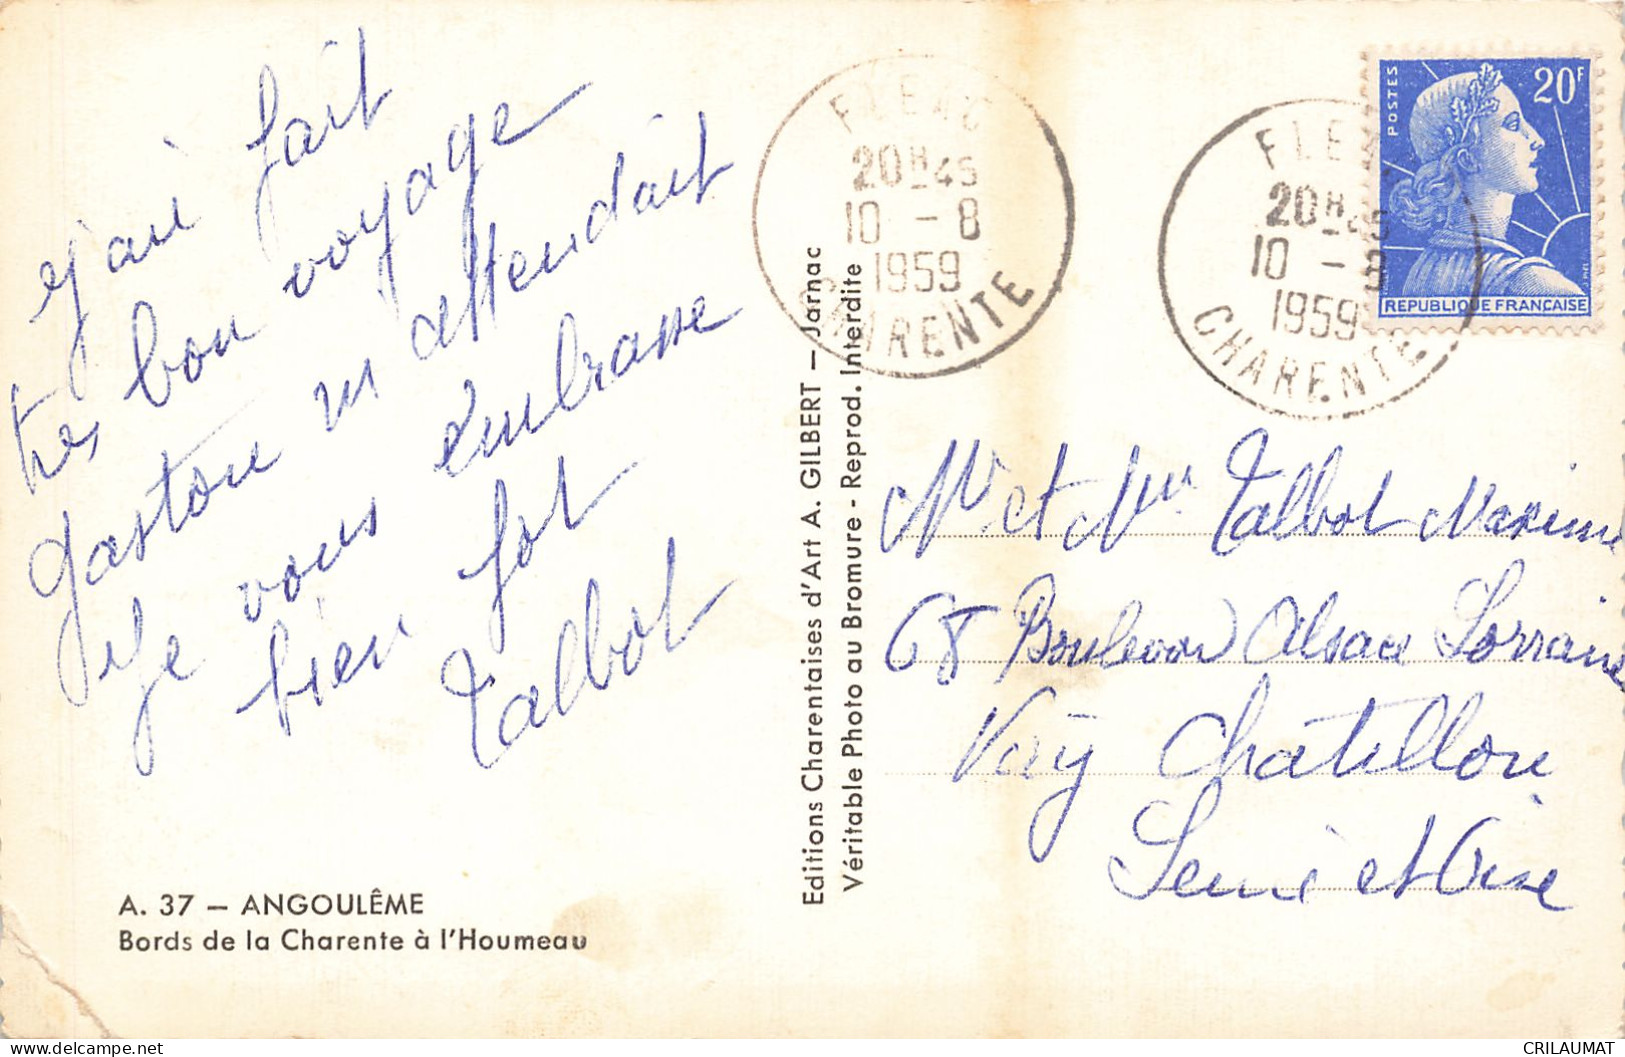 j'ai fait
très bon voyage
gaston m attendait
Je vous embrasse
bien fort
Talbot
A. 37 — ANGOULÊME
Bords de la Charente à l'Houmeau
Editions Charentaises d'Art A. GILBERT — Jarnac
Véritable Photo au Bromure - Reprod. Interdite
FLEAC
20H-45
10 - 8
1959
CHARENTE
FLE
20H-45
10 - 8
1959
CHARENTE
POSTES
20F
REPUBLIQUE FRANÇAISE
Mr et Mme Talbot Maxime
68 Boulevar Alsace Lorraine
Viry Chatillon
Seine et Oise
delcampe.net
CRILAUMAT